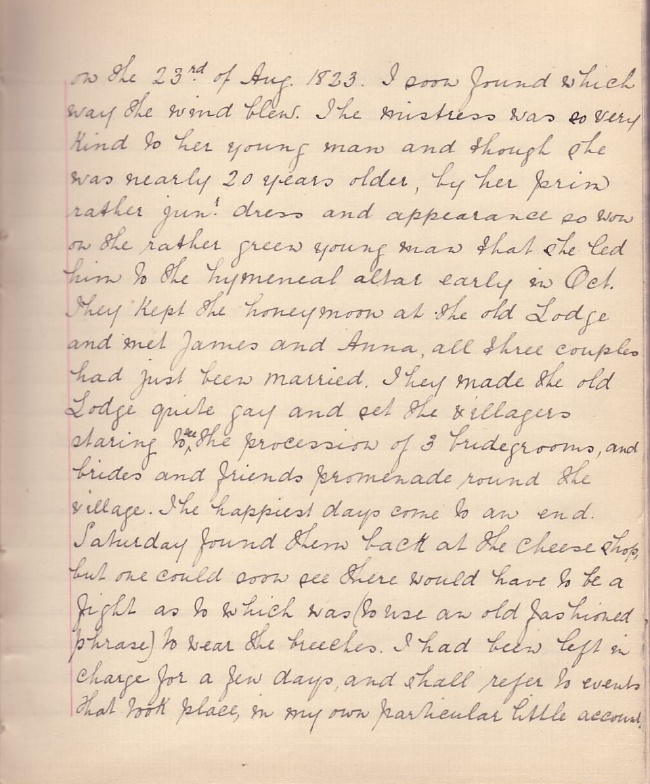 on the 23rd of Aug. 1823. I soon found which
way the wind blew. The mistress was so very
kind to her young man and though she
was nearly 20 years older, by her prim
rather dress and appearance so won
on the rather green young man that she led
him to the hymeneal altar early in Oct.
They kept the honeymoon at the old Lodge
and met James and Anna, all three couples
had just been married. They made the old
Lodge quite gay and set the villagers
staring to see the procession of 3 bridegrooms, and
brides and friends promenade round the
village. The happiest days come to an end.
Saturday found them back at the cheese shop,
but one could soon see there would have to be a
fight as to which was (to use an old fashioned
phrase) to wear the breeches. I had been left in
charge for a few days, and shall refer to events
that took place, in my own particular little account.